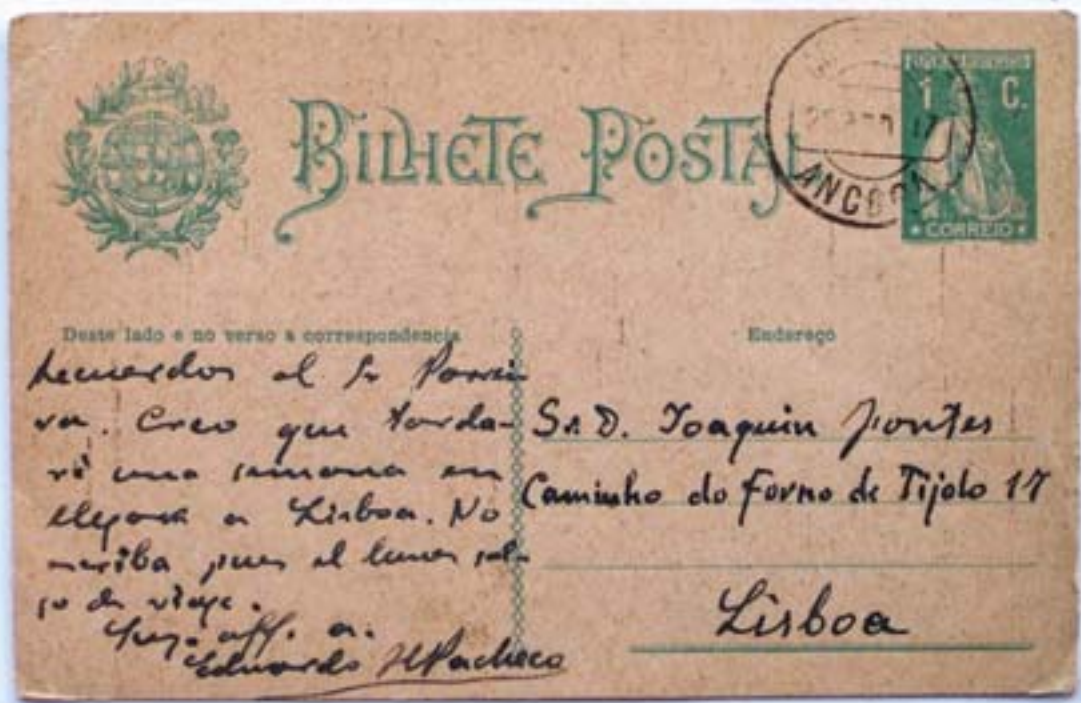 BILHETE POSTAL
1 C.
CORREIO
ANCORA
Deste lado e no verso a correspondencia
Endereço
Recuerdos al Sr
Creo que tarda-
ré una semana en
llegar a Lisboa. No
escriba pues el lunes sal-
go de viaje.
aff. a.
Eduardo HPacheco
Sr. D. Joaquin Fontes
Caminho do Forno de Tijolo 17
Lisboa